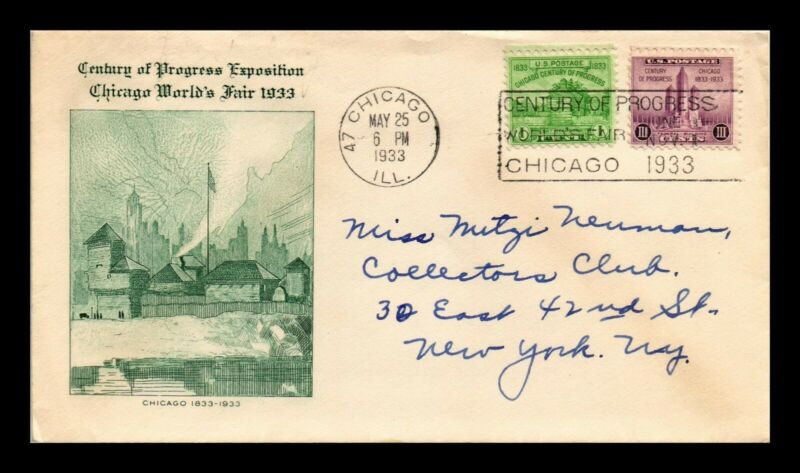 Century of Progress Exposition
Chicago World's Fair 1933
CHICAGO 1833-1933
47 CHICAGO
MAY 25
6 PM
1933
ILL.
U.S. POSTAGE
1833 1833
CHICAGO CENTURY OF PROGRESS
U.S. POSTAGE
CENTURY OF PROGRESS
CHICAGO 1833-1933
III CENTS III
CENTURY OF PROGRESS
WORLD'S FAIR
CHICAGO 1933
Miss Mitzi Neuman,
Collectors Club.
30 East 42nd St.
New York. Ny.